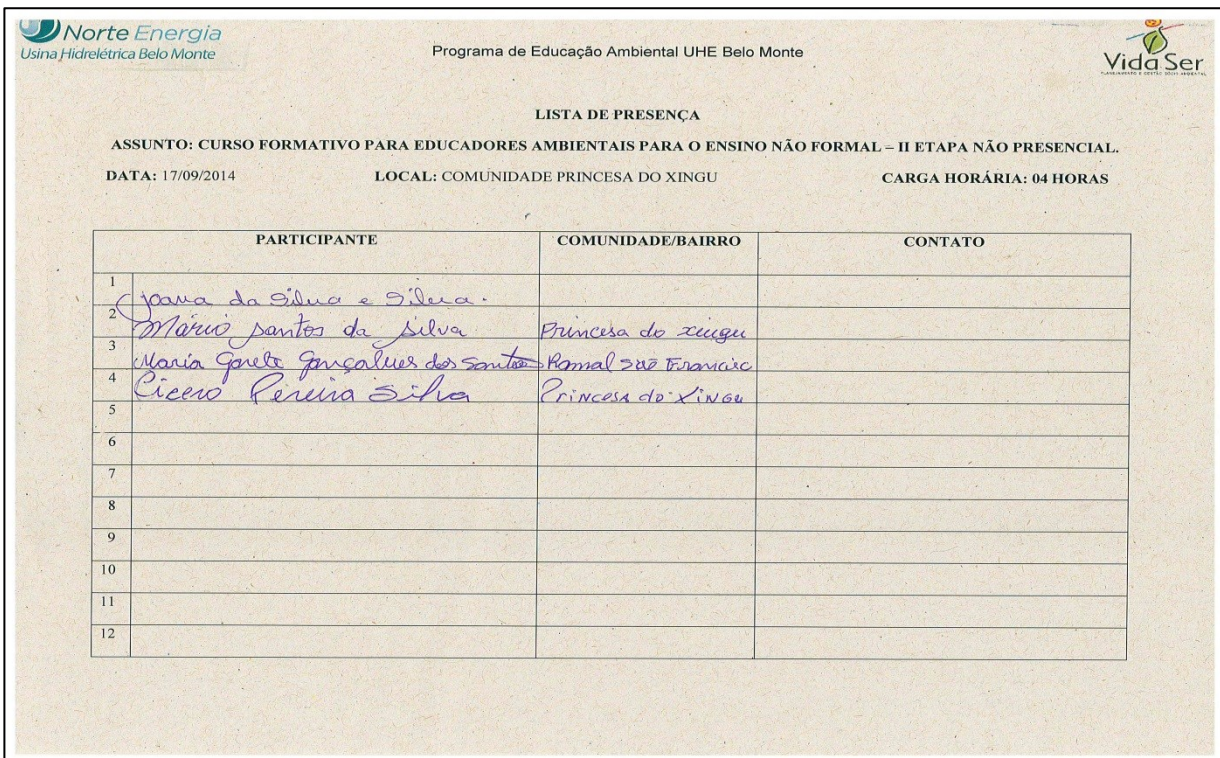 Norte Energia
Usina Hidrelétrica Belo Monte
Programa de Educação Ambiental UHE Belo Monte
Vida Ser
LISTA DE PRESENÇA
ASSUNTO: CURSO FORMATIVO PARA EDUCADORES AMBIENTAIS PARA O ENSINO NÃO FORMAL – II ETAPA NÃO PRESENCIAL.
DATA: 17/09/2014 LOCAL: COMUNIDADE PRINCESA DO XINGU CARGA HORÁRIA: 04 HORAS
PARTICIPANTE COMUNIDADE/BAIRRO CONTATO
1 Joana da Silva e Silva.
2 Mário santos da silva Princesa do xingu
3 Maria Gorete Gonçalves dos Santos Ramal São Francisc
4 Cicero Pereira Silva Princesa do Xingu
5
6
7
8
9
10
11
12